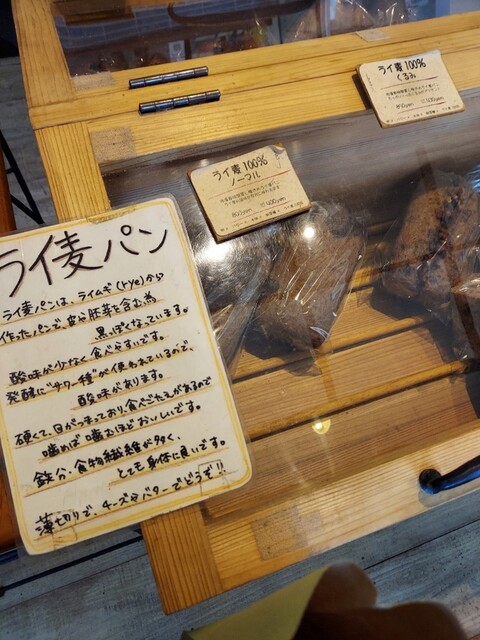 ライ麦パン
ライ麦パンは、ライムギ(rye)から
作ったパンで、皮ら胚芽を含む為
黒っぽくなっています。
酸味が少なく食べらすいです。
発酵に"サワー種"が使われているので、
酸味があります。
硬くて、目がつまっており、食べごたえがあるので
噛めば噛むほどおいしいです。
鉄分、食物繊維が多く、
とても身体に良いです。
薄切りで、チーズやバターでどうぞ!!
ライ麦100%
ノーマル
ライ麦100%
くるみ